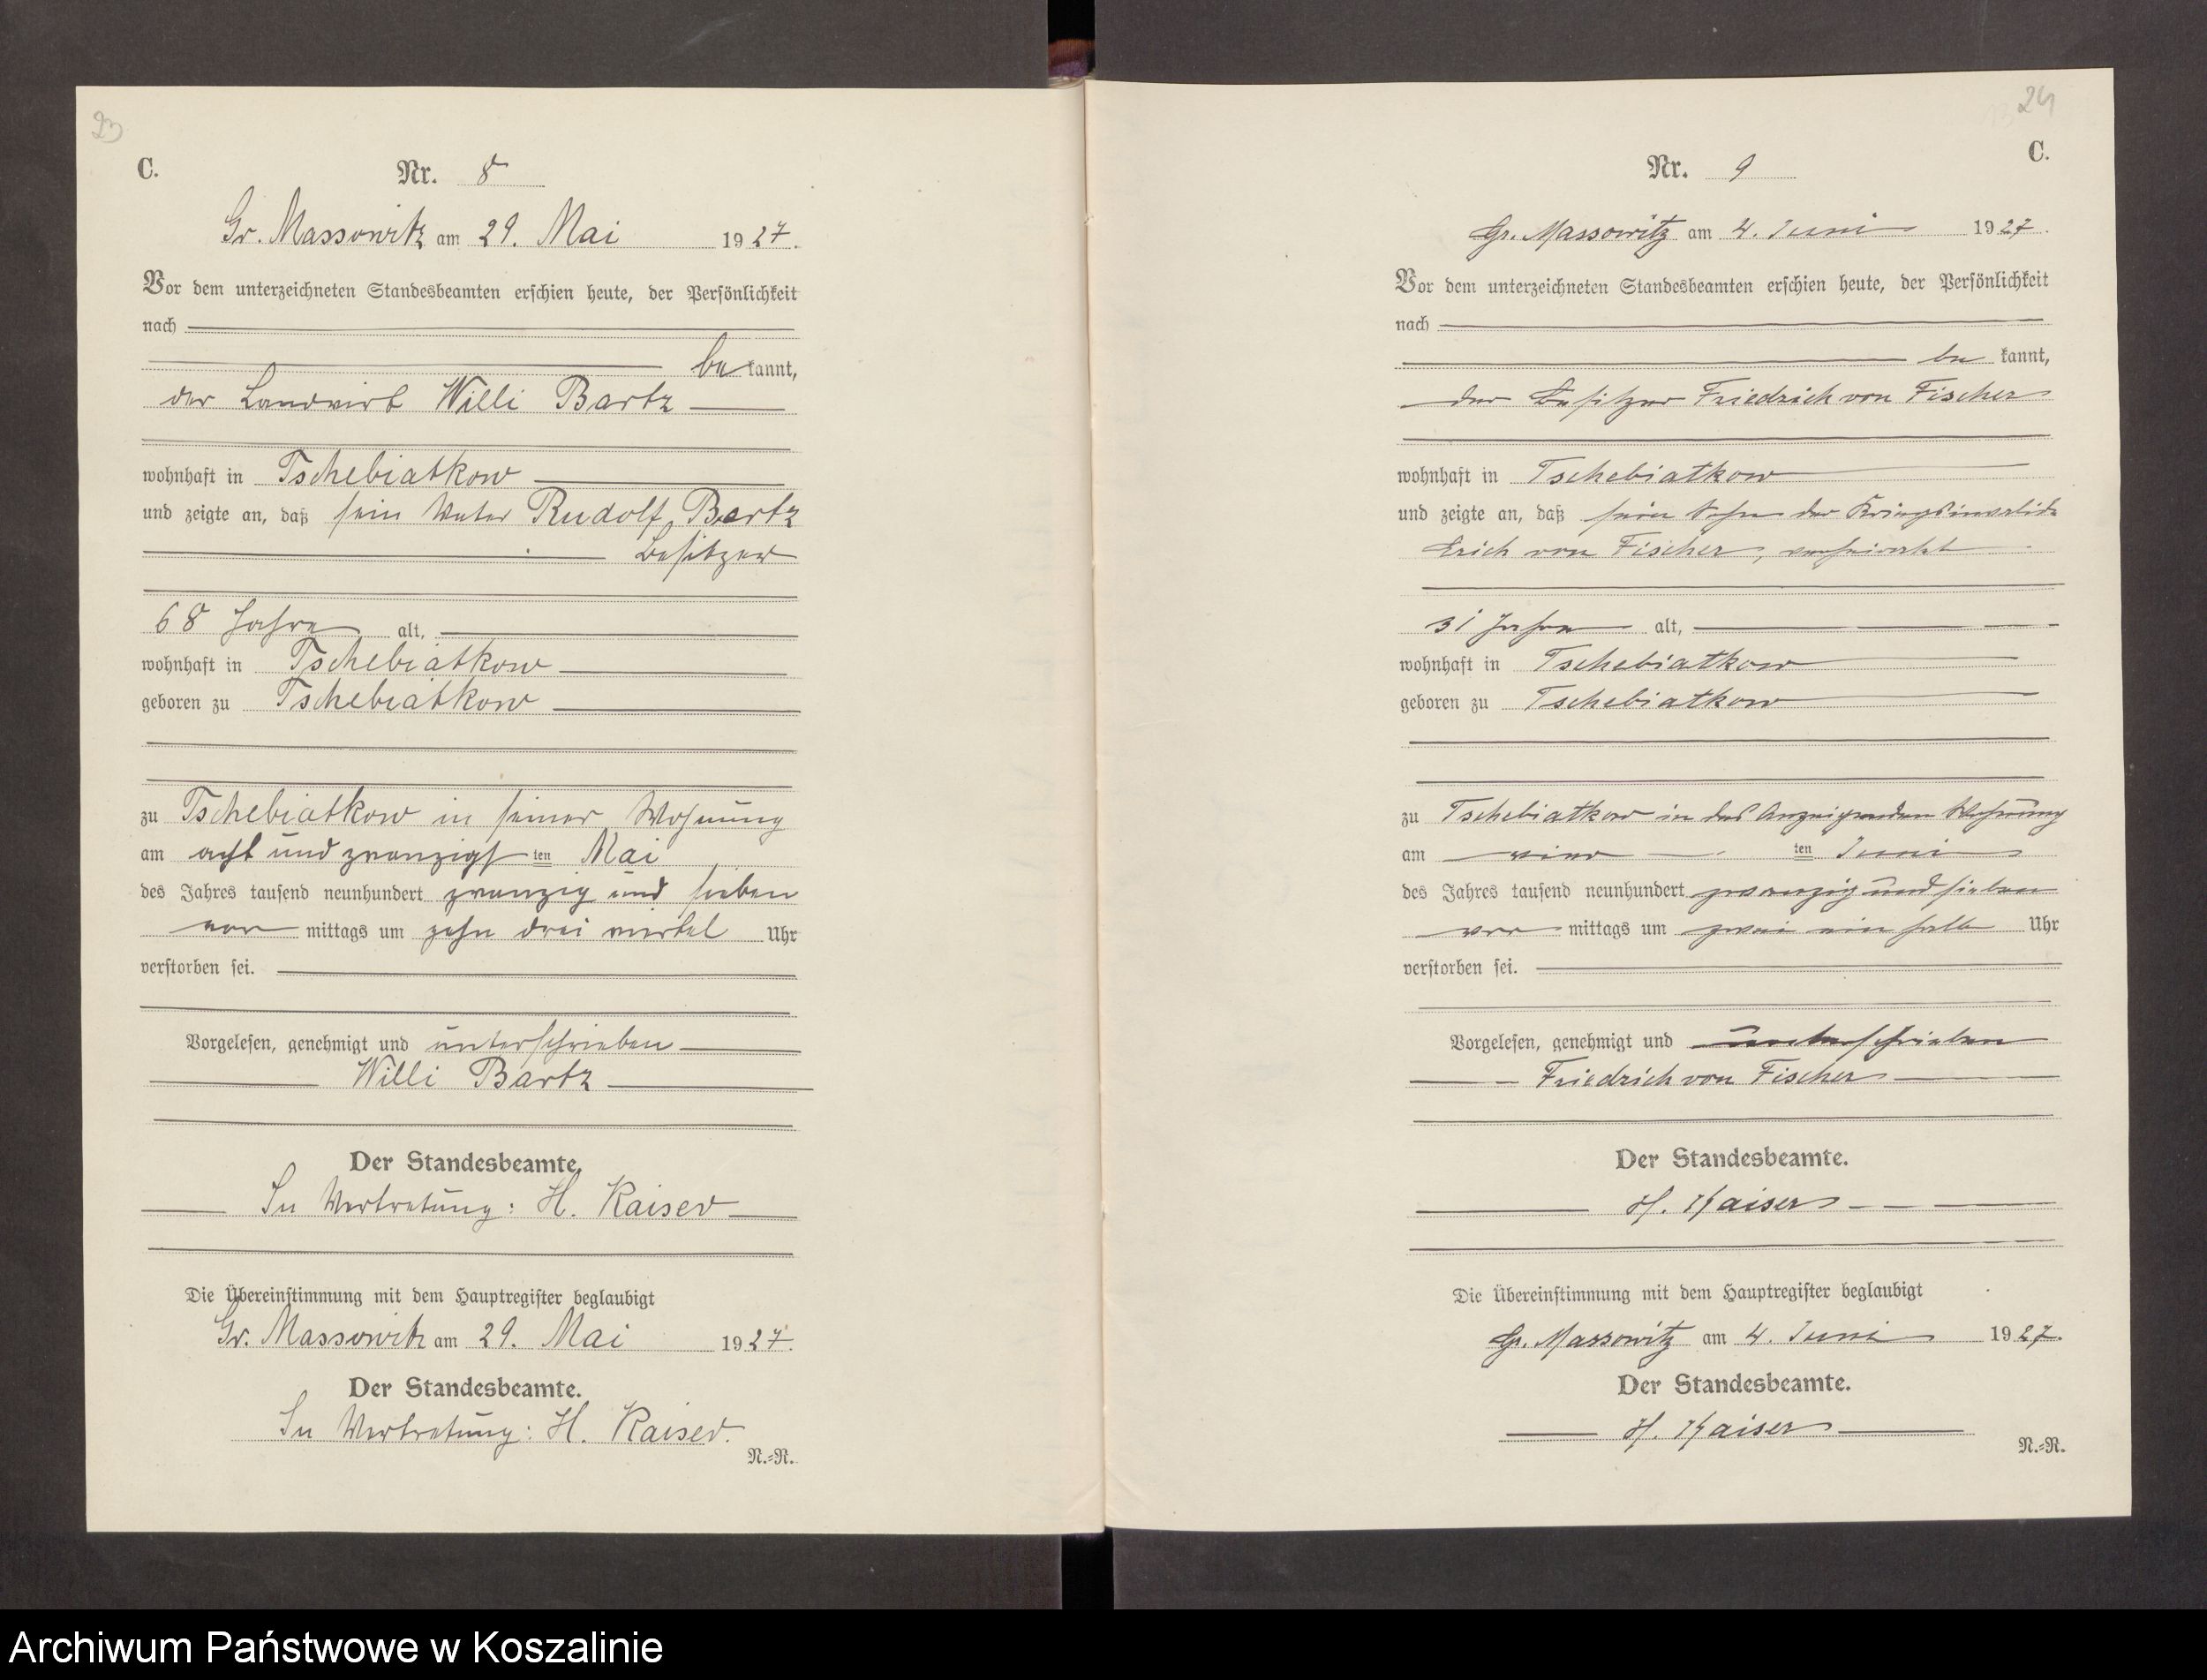 23
C.
Nr. 8
Gr. Massowitz am 29. Mai 1927.
Vor dem unterzeichneten Standesbeamten erschien heute, der Persönlichkeit
nach
be kannt,
der Landwirt Willi Bartz
wohnhaft in Tschebiatkow
und zeigte an, daß sein Vater Rudolf Bartz
Besitzer
68 Jahre alt,
wohnhaft in Tschebiatkow
geboren zu Tschebiatkow
zu Tschebiatkow in seiner Wohnung
am acht und zwanzigs ten Mai
des Jahres tausend neunhundert zwanzig und sieben
vor mittags um zehn drei viertel Uhr
verstorben sei.
Vorgelesen, genehmigt und unterschrieben
Willi Bartz
Der Standesbeamte.
In Vertretung: H. Kaiser
Die Übereinstimmung mit dem Hauptregister beglaubigt
Gr. Massowitz am 29. Mai 1927.
Der Standesbeamte.
In Vertretung: H. Kaiser.
N.=R.
24
C.
Nr. 9
Gr. Massowitz am 4. Juni 1927.
Vor dem unterzeichneten Standesbeamten erschien heute, der Persönlichkeit
nach
be kannt,
der Besitzer Friedrich von Fischer
wohnhaft in Tschebiatkow
und zeigte an, daß sein Sohn der Kriegsinvalide
Erich von Fischer, verheiratet
31 Jahre alt,
wohnhaft in Tschebiatkow
geboren zu Tschebiatkow
zu Tschebiatkow in des Anzeigenden Wohnung
am vier ten Juni
des Jahres tausend neunhundert zwanzig und sieben
vor mittags um zwei ein halb Uhr
verstorben sei.
Vorgelesen, genehmigt und unterschrieben
Friedrich von Fischer
Der Standesbeamte.
H. Kaiser
Die Übereinstimmung mit dem Hauptregister beglaubigt
Gr. Massowitz am 4. Juni 1927.
Der Standesbeamte.
H. Kaiser
N.=R.
Archiwum Państwowe w Koszalinie